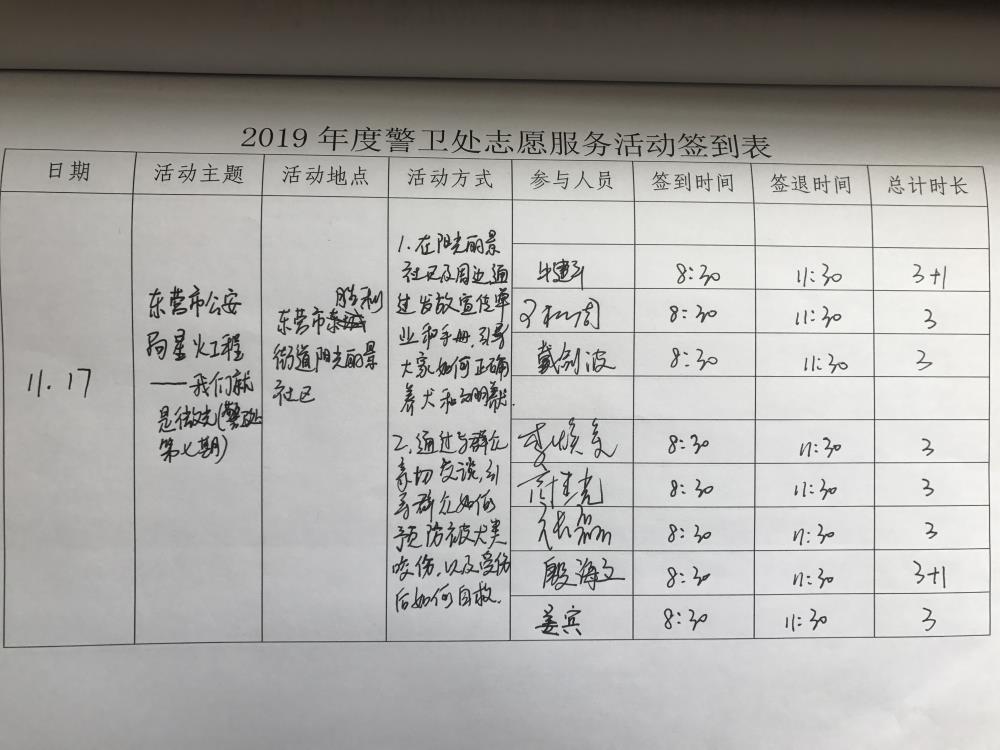 2019 年度警卫处志愿服务活动签到表
日期 活动主题 活动地点 活动方式 参与人员 签到时间 签退时间 总计时长
11.17
东营市公安
局星火工程
——我们就
是微光(警卫处
第七期)
胜利
东营市
街道阳光丽景
社区
1.在阳光丽景
社区及周边,通
过发放宣传单
业和手册,引导
大家如何正确
养犬和文明养犬.
2.通过与群众
亲切交谈,引
导群众如何
预防被犬类
咬伤,以及受伤
后如何自救.
8:30 11:30 3+1
8:30 11:30 3
戴剑波 8:30 11:30 3
8:30 11:30 3
8:30 11:30 3
8:30 11:30 3
殷海文 8:30 11:30 3+1
姜宾 8:30 11:30 3